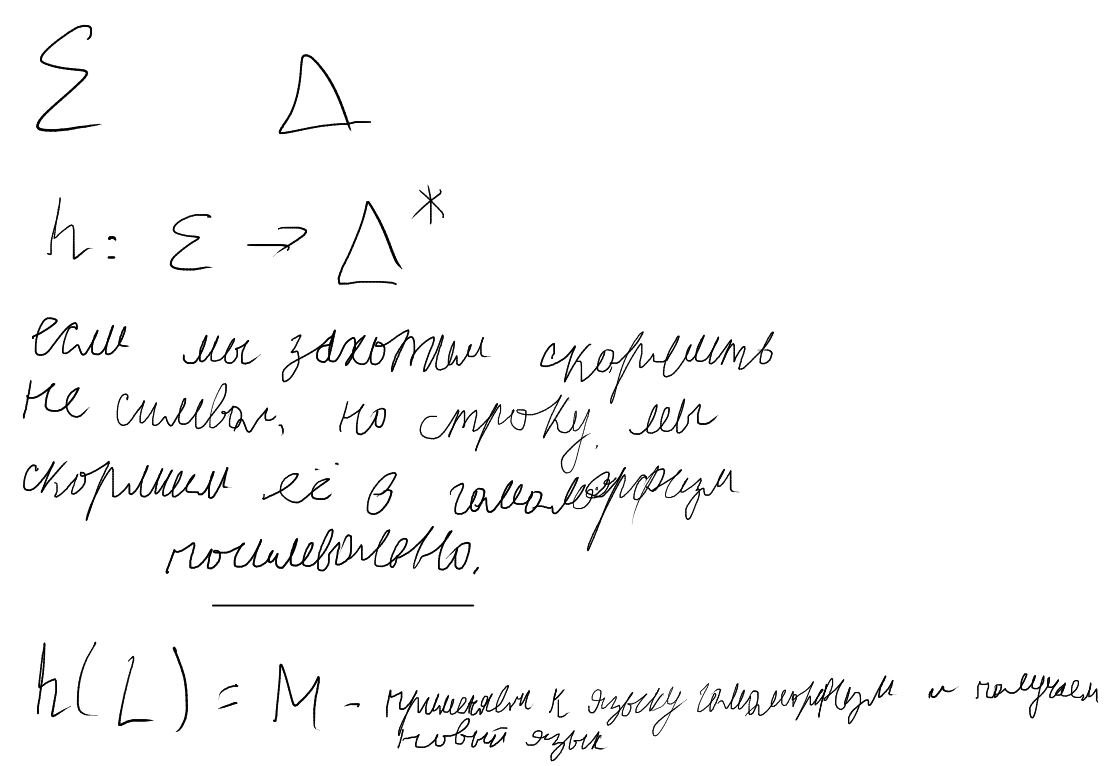 Σ Δ
h: Σ → Δ*
если мы захотим скормить
не символ, но строку, мы
скормим её в гомоморфизм
посимвольно.
h(L) = M - применяем к языку гомоморфизм и получаем
новый язык